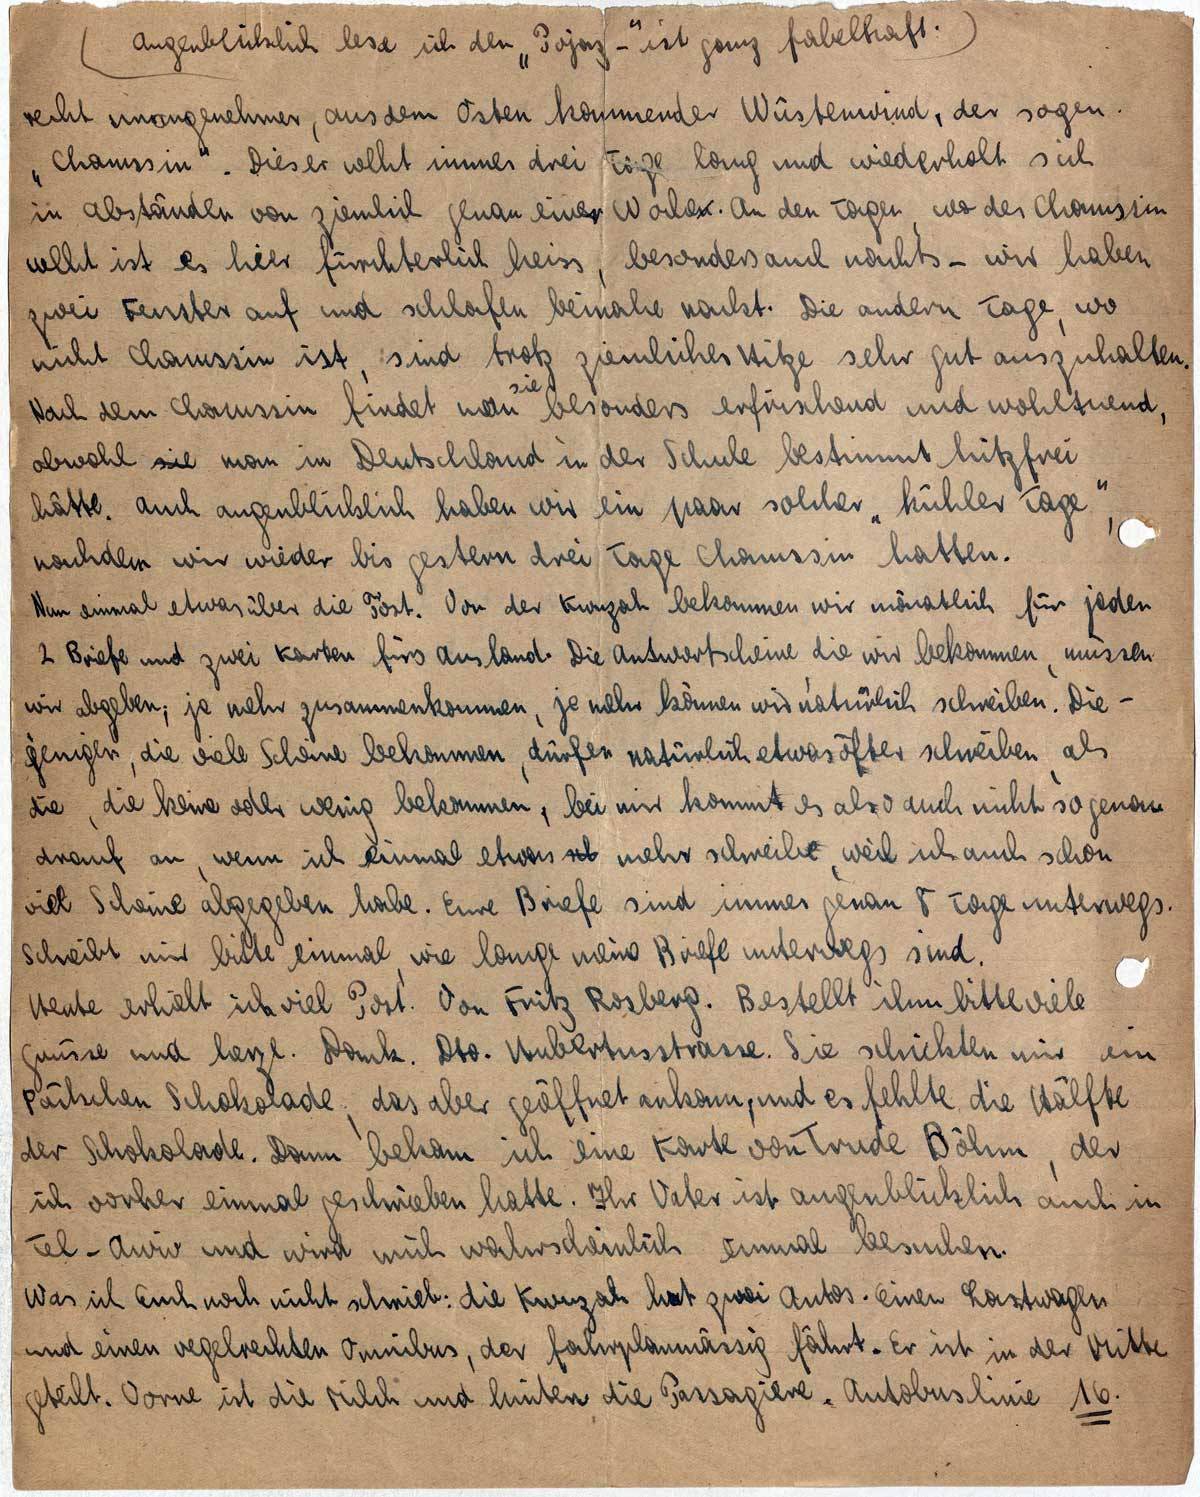 (Augenblicklich lese ich den „Pojaz –" ist ganz fabelhaft.)
recht unangenehmer, aus dem Osten kommender Wüstenwind, der sogen.
„Chamssin". Dieser weht immer drei Tage lang und wiederholt sich
in Abständen von ziemlich genau einer Woche. An den Tagen, wo der Chamssin
weht ist es hier fürchterlich heiss, besonders auch nachts – wir haben
zwei Fenster auf und schlafen beinahe nackt. Die andern Tage, wo
nicht Chamssin ist, sind trotz ziemlicher Hitze sehr gut auszuhalten.
Nach dem Chamssin findet man sie besonders erfrischend und wohltuend,
obwohl sie man in Deutschland in der Schule bestimmt hitzfrei
hätte. Auch augenblicklich haben wir ein paar solcher „kühler Tage",
nachdem wir wieder bis gestern drei Tage Chamssin hatten.
Nun einmal etwas über die Post. Von der Kwuzah bekommen wir monatlich für jeden
2 Briefe und zwei Karten fürs Ausland. Die Antwortscheine die wir bekommen, müssen
wir abgeben; je mehr zusammenkommen, je mehr können wir natürlich schreiben. Die-
jenigen, die viele Scheine bekommen, dürfen natürlich etwas öfter schreiben, als
die, die keine oder wenig bekommen, bei mir kommt es also auch nicht so genau
drauf an, wenn ich einmal etwas mehr schreibe, weil ich auch schon
viel Scheine abgegeben habe. Eure Briefe sind immer genau 8 Tage unterwegs.
Schreibt mir bitte einmal, wie lange meine Briefe unterwegs sind.
Heute erhielt ich viel Post. Von Fritz Rosberg. Bestellt ihm bitte viele
Grüsse und herzl. Dank. Dto. Hubertusstrasse. Sie schickten mir ein
Päckchen Schokolade, das aber geöffnet ankam, und es fehlte die Hälfte
der Schokolade. Dann bekam ich eine Karte von Trude Böhm, der
ich vorher einmal geschrieben hatte. Ihr Vater ist augenblicklich auch in
Tel-Awiw und wird mich wahrscheinlich einmal besuchen.
Was ich Euch noch nicht schrieb: die Kwuzah hat zwei Autos. Einen Lastwagen
und einen regelrechten Omnibus, der fahrplanmässig fährt. Er ist in der Mitte
geteilt. Vorne ist die Milch und hinten die Passagiere. Autobuslinie 16.